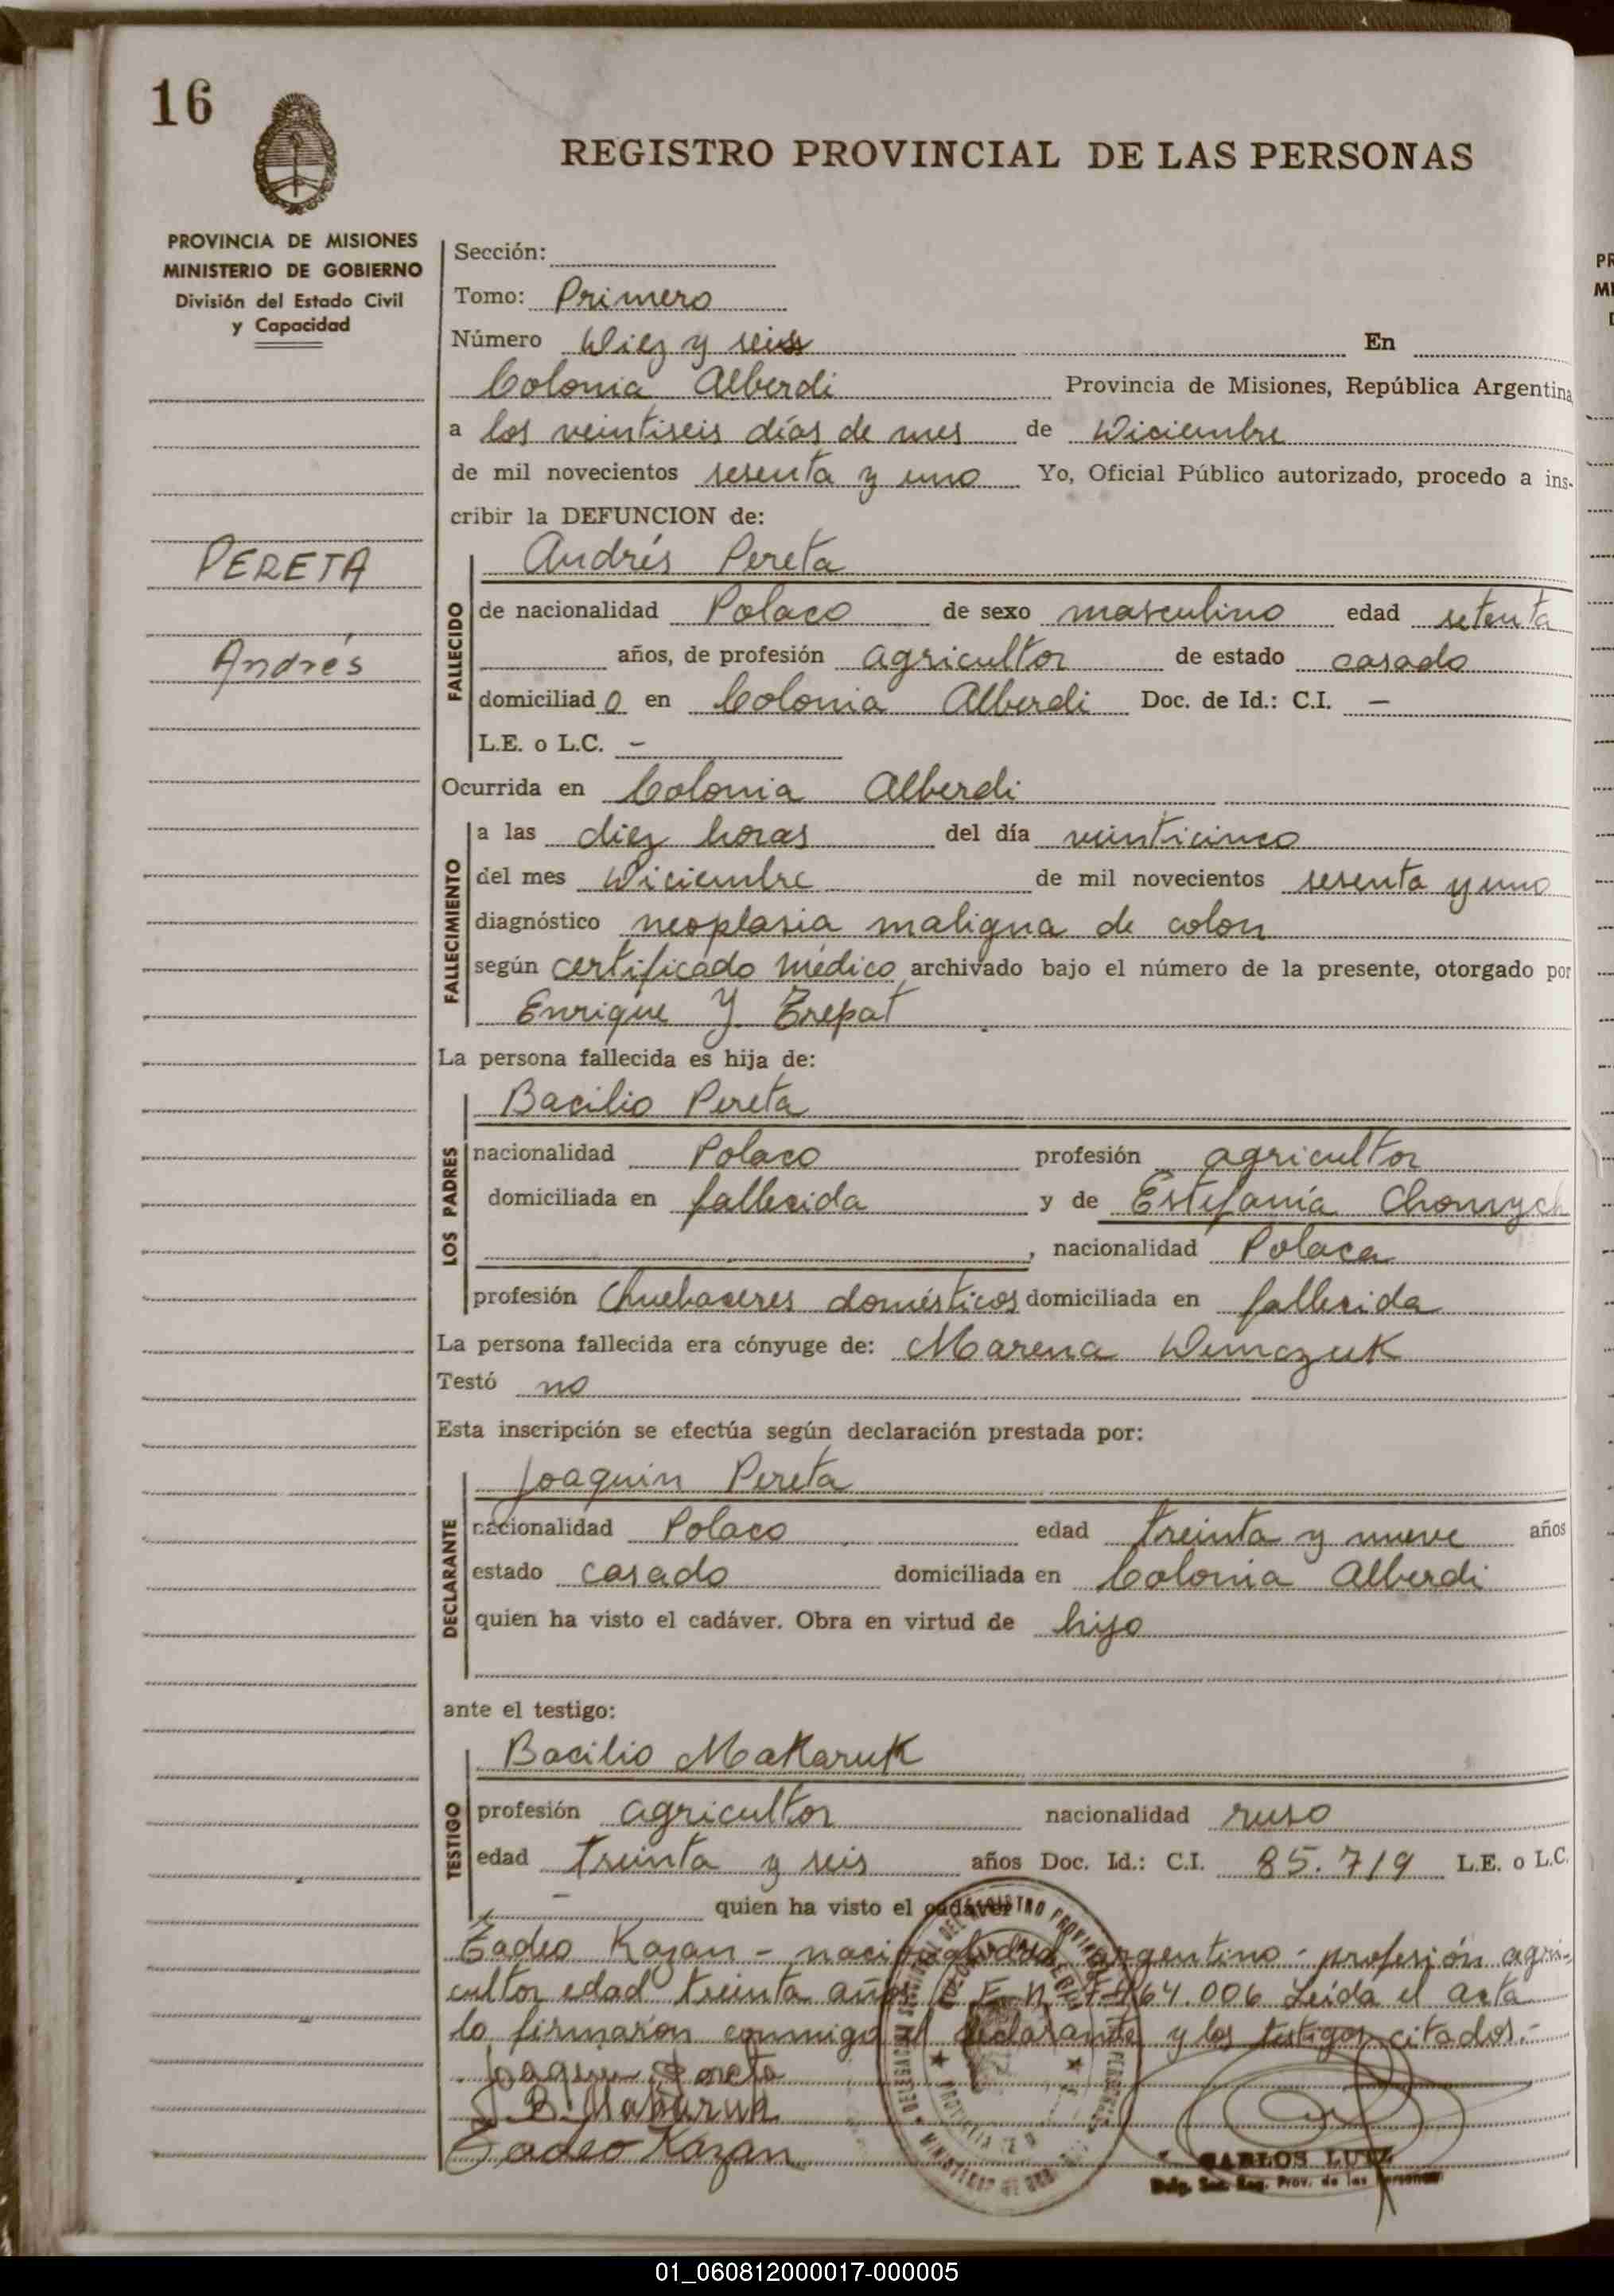 16
REGISTRO PROVINCIAL DE LAS PERSONAS
PROVINCIA DE MISIONES
MINISTERIO DE GOBIERNO
División del Estado Civil
y Capacidad
PERETA
Andrés
Sección:
Tomo: Primero
Número Diez y seis En
Colonia Alberdi Provincia de Misiones, República Argentina
a los veintiseis días de mes de Diciembre
de mil novecientos sesenta y uno Yo, Oficial Público autorizado, procedo a ins-
cribir la DEFUNCION de:
Andrés Pereta
FALLECIDO
de nacionalidad Polaco de sexo masculino edad setenta
años, de profesión agricultor de estado casado
domiciliado en Colonia Alberdi Doc. de Id.: C.I. -
L.E. o L.C. -
Ocurrida en Colonia Alberdi
FALLECIMIENTO
a las diez horas del día veinticinco
del mes Diciembre de mil novecientos sesenta y uno
diagnóstico neoplasia maligna de colon
según certificado médico archivado bajo el número de la presente, otorgado por
Enrique Y
La persona fallecida es hija de:
Bacilio Pereta
LOS PADRES
nacionalidad Polaco profesión agricultor
domiciliada en fallecida y de Estefanía Chomych
, nacionalidad Polaca
profesión Quehaceres domésticos domiciliada en fallecida
La persona fallecida era cónyuge de: Marena Demczuk
Testó no
Esta inscripción se efectúa según declaración prestada por:
Joaquin Pereta
DECLARANTE
nacionalidad Polaco edad treinta y nueve años
estado casado domiciliada en Colonia Alberdi
quien ha visto el cadáver. Obra en virtud de hijo
ante el testigo:
Bacilio Makaruk
TESTIGO
profesión agricultor nacionalidad ruso
edad treinta y seis años Doc. Id.: C.I. 85.719 L.E. o L.C.
- quien ha visto el cadáver
Tadeo Kazan - nacionalidad argentino - profesión agri-
cultor edad treinta años L.E. Nº 7.464.006 Leída el acta
lo firmaron conmigo el declarante y los testigos citados.-
Joaquin Pereta
B. Makaruk
Tadeo Kazan
CARLOS LUTZ
Delg. Sec. Reg. Prov. de las Personas
01_060812000017-000005